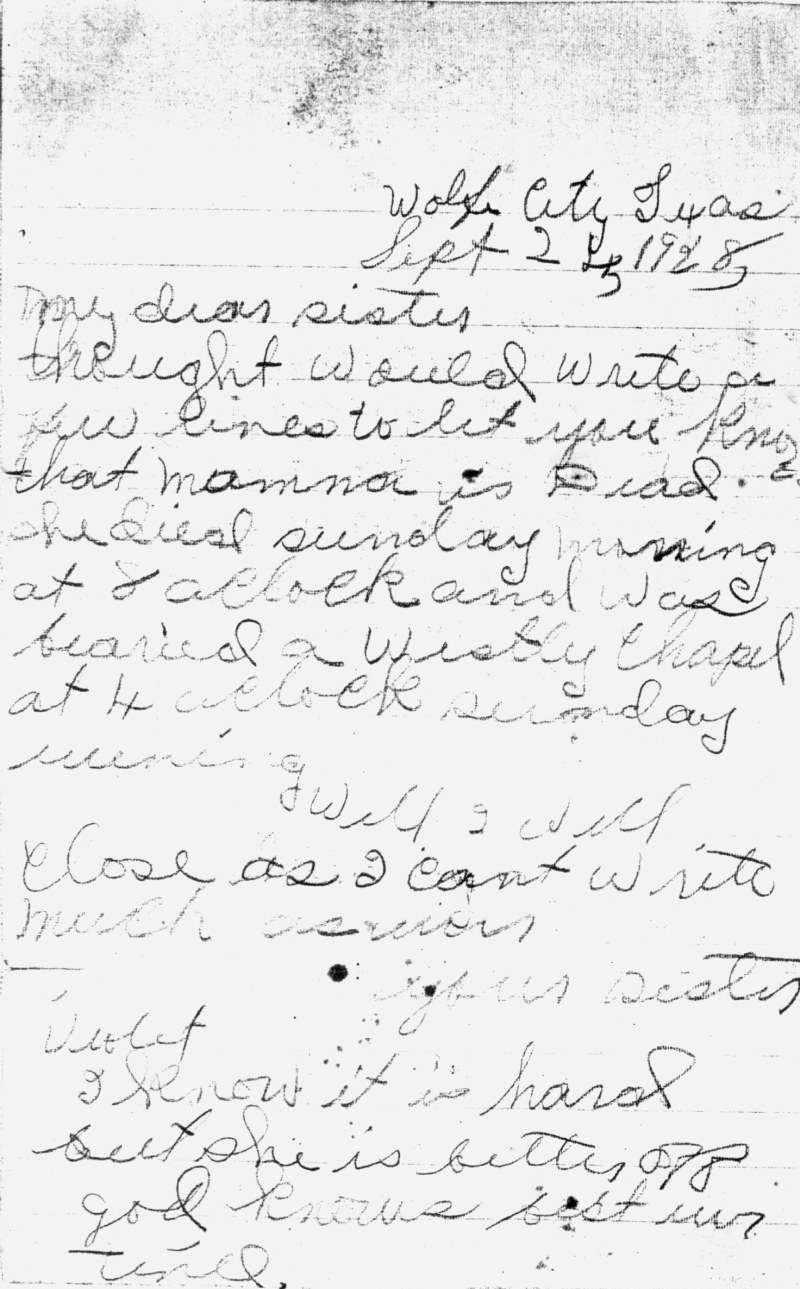 Wolfe City Texas
Sept 24, 1928,
my dear sister
thought would write a
few lines to let you know
that mamma is Dead.
she died sunday morning
at 8 aclock and was
buaried a Westly Chapel
at 4 aclock sunday
evening
Well I will
close as I cant write
much
your sister
Violet
I know it is hard
but she is better off
god knows best